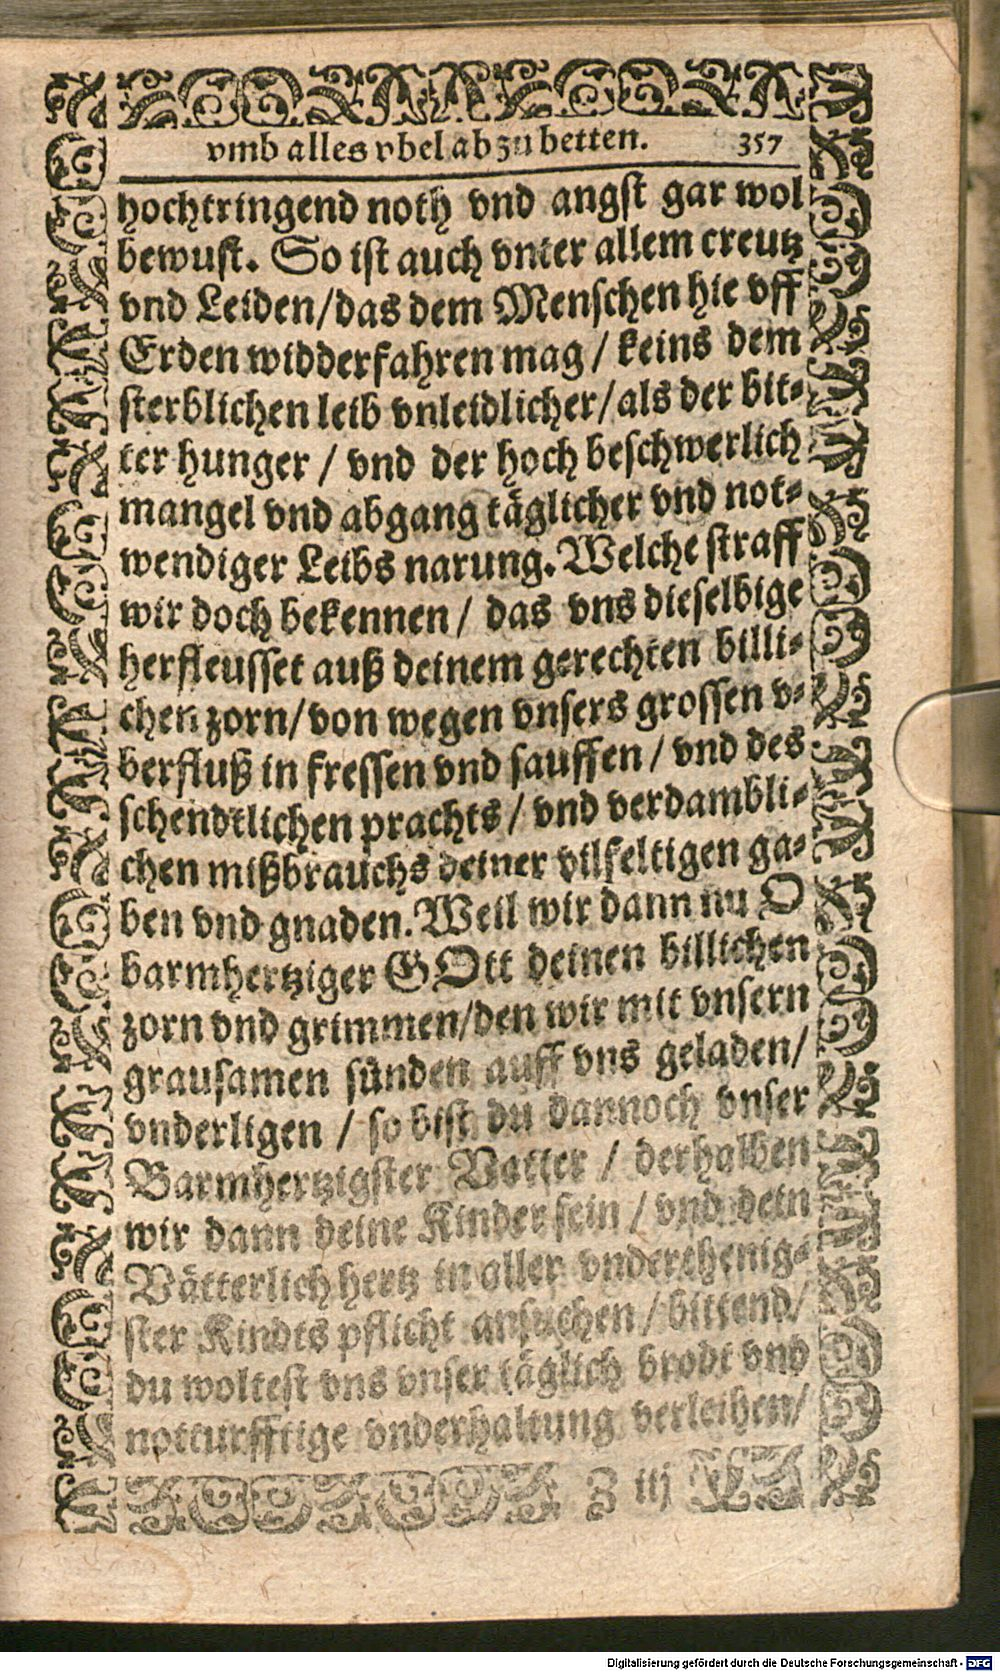 vmb alles vbel abzubetten. 357
hochtringend noth vnd angst gar wol
bewust. So ist auch vnter allem creutz
vnd Leiden/das dem Menschen hie vff
Erden widderfahren mag / keins dem
sterblichen leib vnleidlicher/als der bit-
ter hunger / vnd der hoch beschwerlich
mangel vnd abgang täglicher vnd not-
wendiger Leibs narung. Welche straff
wir doch bekennen / das vns dieselbige
herfleusset auß deinem gerechten billi-
chen zorn/von wegen vnsers grossen v-
berfluß in fressen vnd sauffen / vnd des
schendtlichen prachts / vnd verdambli-
chen mißbrauchs deiner vilfeltigen ga-
ben vnd gnaden. Weil wir dann nu O
barmhertziger GOtt deinen billichen
zorn vnd grimmen/den wir mit vnsern
grausamen sünden auff vns geladen/
vnderligen / so bist du dannoch vnser
Barmhertzigster Vatter / derhalben
wir dann deine Kinder sein / vnd dein
Vätterlich hertz in aller vnderthenig-
ster Kindts pflicht ansuchen / bittend/
du woltest vns vnser täglich brodt vnd
notturfftige vnderhaltung verleihen/
Z iij
Digitalisierung gefördert durch die Deutsche Forschungsgemeinschaft - DFG